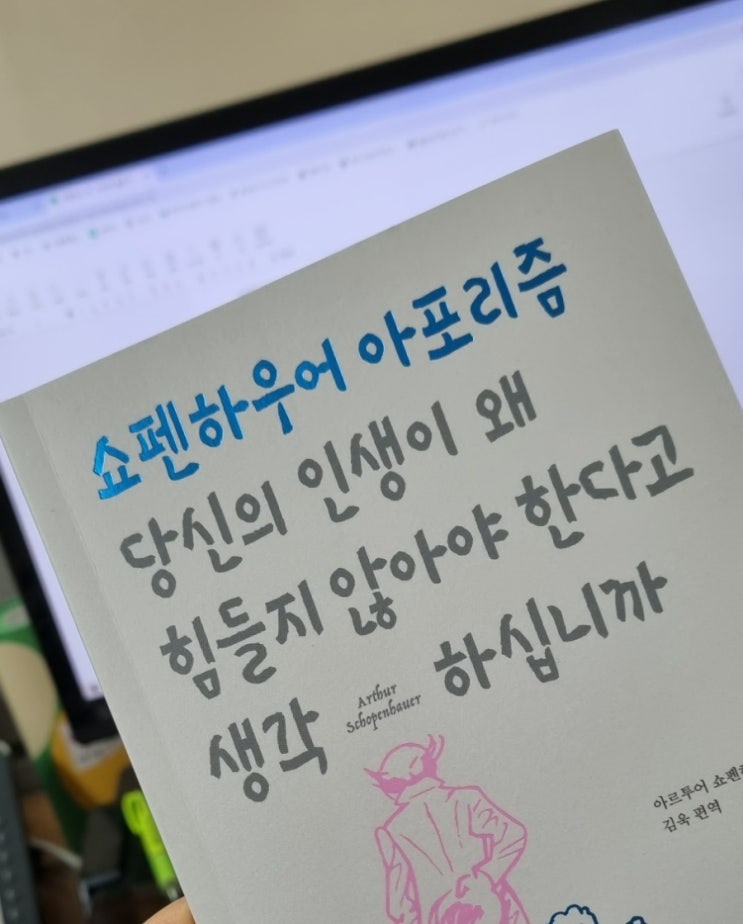 쇼펜하우어 아포리즘
당신의 인생이 왜
힘들지 않아야 한다고
생각 하십니까
Arthur
Schopenhauer
아르투어
김욱 편역